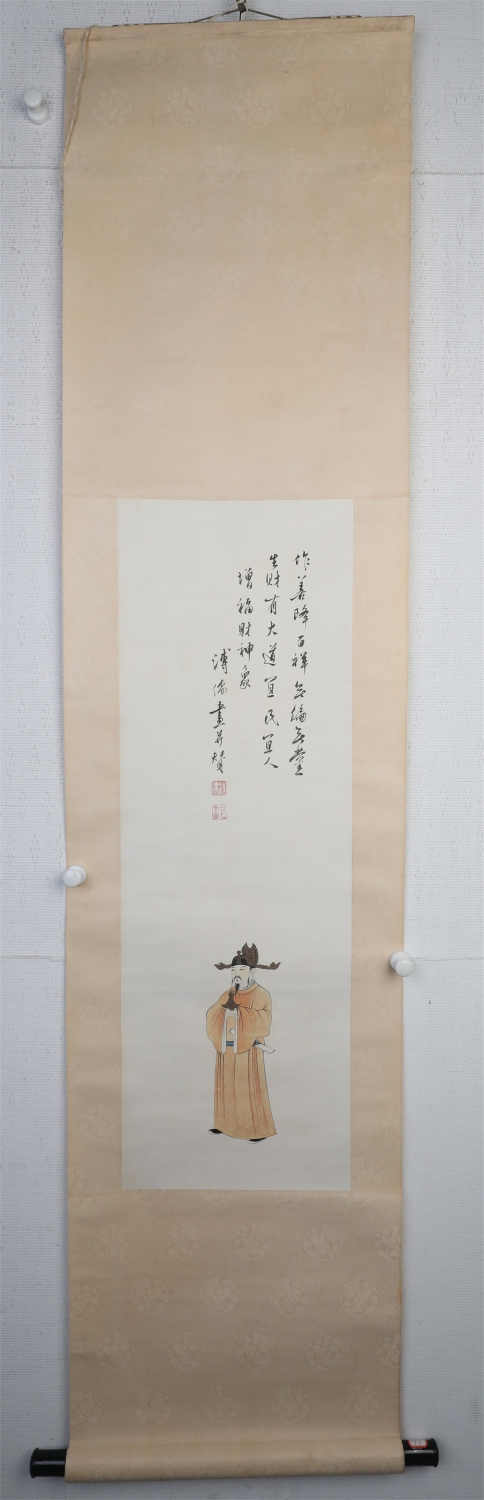 作善降百祥無偏無黨
生財有大道宜民宜人
增福財神象
溥儒畫并贊